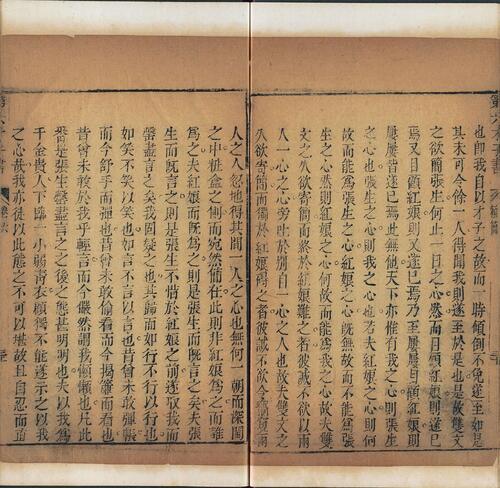 也即我自以才子之故而一時傾倒不免遂至如是
其未可令餘一人得聞我則遂至於是也是故雙文
之欲簡張生何止一日之心然而目顧紅娘則遂已
焉又目顧紅娘則又遂已焉乃至屢屢目顧紅娘則
屢屢皆遂已焉此無他天下亦惟有我之心則張生
之心也張生之心則我之心也若夫紅娘之心則何
故而能爲張生之心紅娘之心既無故而不能爲張
生之心然則紅娘之心何故而能爲我之心故夫雙
文之久欲寄簡而終於紅娘難之者彼誠不欲以兩
人一心之心旁吐於別自一人之人也故夫雙文之
久欲寄簡而獨於紅娘碍之者彼誠不欲令竊窺兩
人之人忽地得其間一人之心也無何一朝而深閨
之中粧盒之側而宛然簡在此則非紅娘爲之而誰
爲之夫紅娘而既爲之則是張生而既言之矣夫張
生而既言之則是張生不惜於紅娘之前遂取我而
罄盡言之矣我固疑之也其歸而如行不行以行也
如笑不笑以笑也如言不言以言也昔曾未敢彈帳
而今舒手而彈也昔曾未敢偷看而今揭簾而看也
昔曾未敢於我乎輕言而今儼然謂我懶懶也凡此
悉是張生罄盡言之之後之態甚明明也夫以我爲
千金貴人下臨一小弱青衣顧獨不能遂示之以我
之心哉我亦徒以此態之不可以堪故且自忍而直